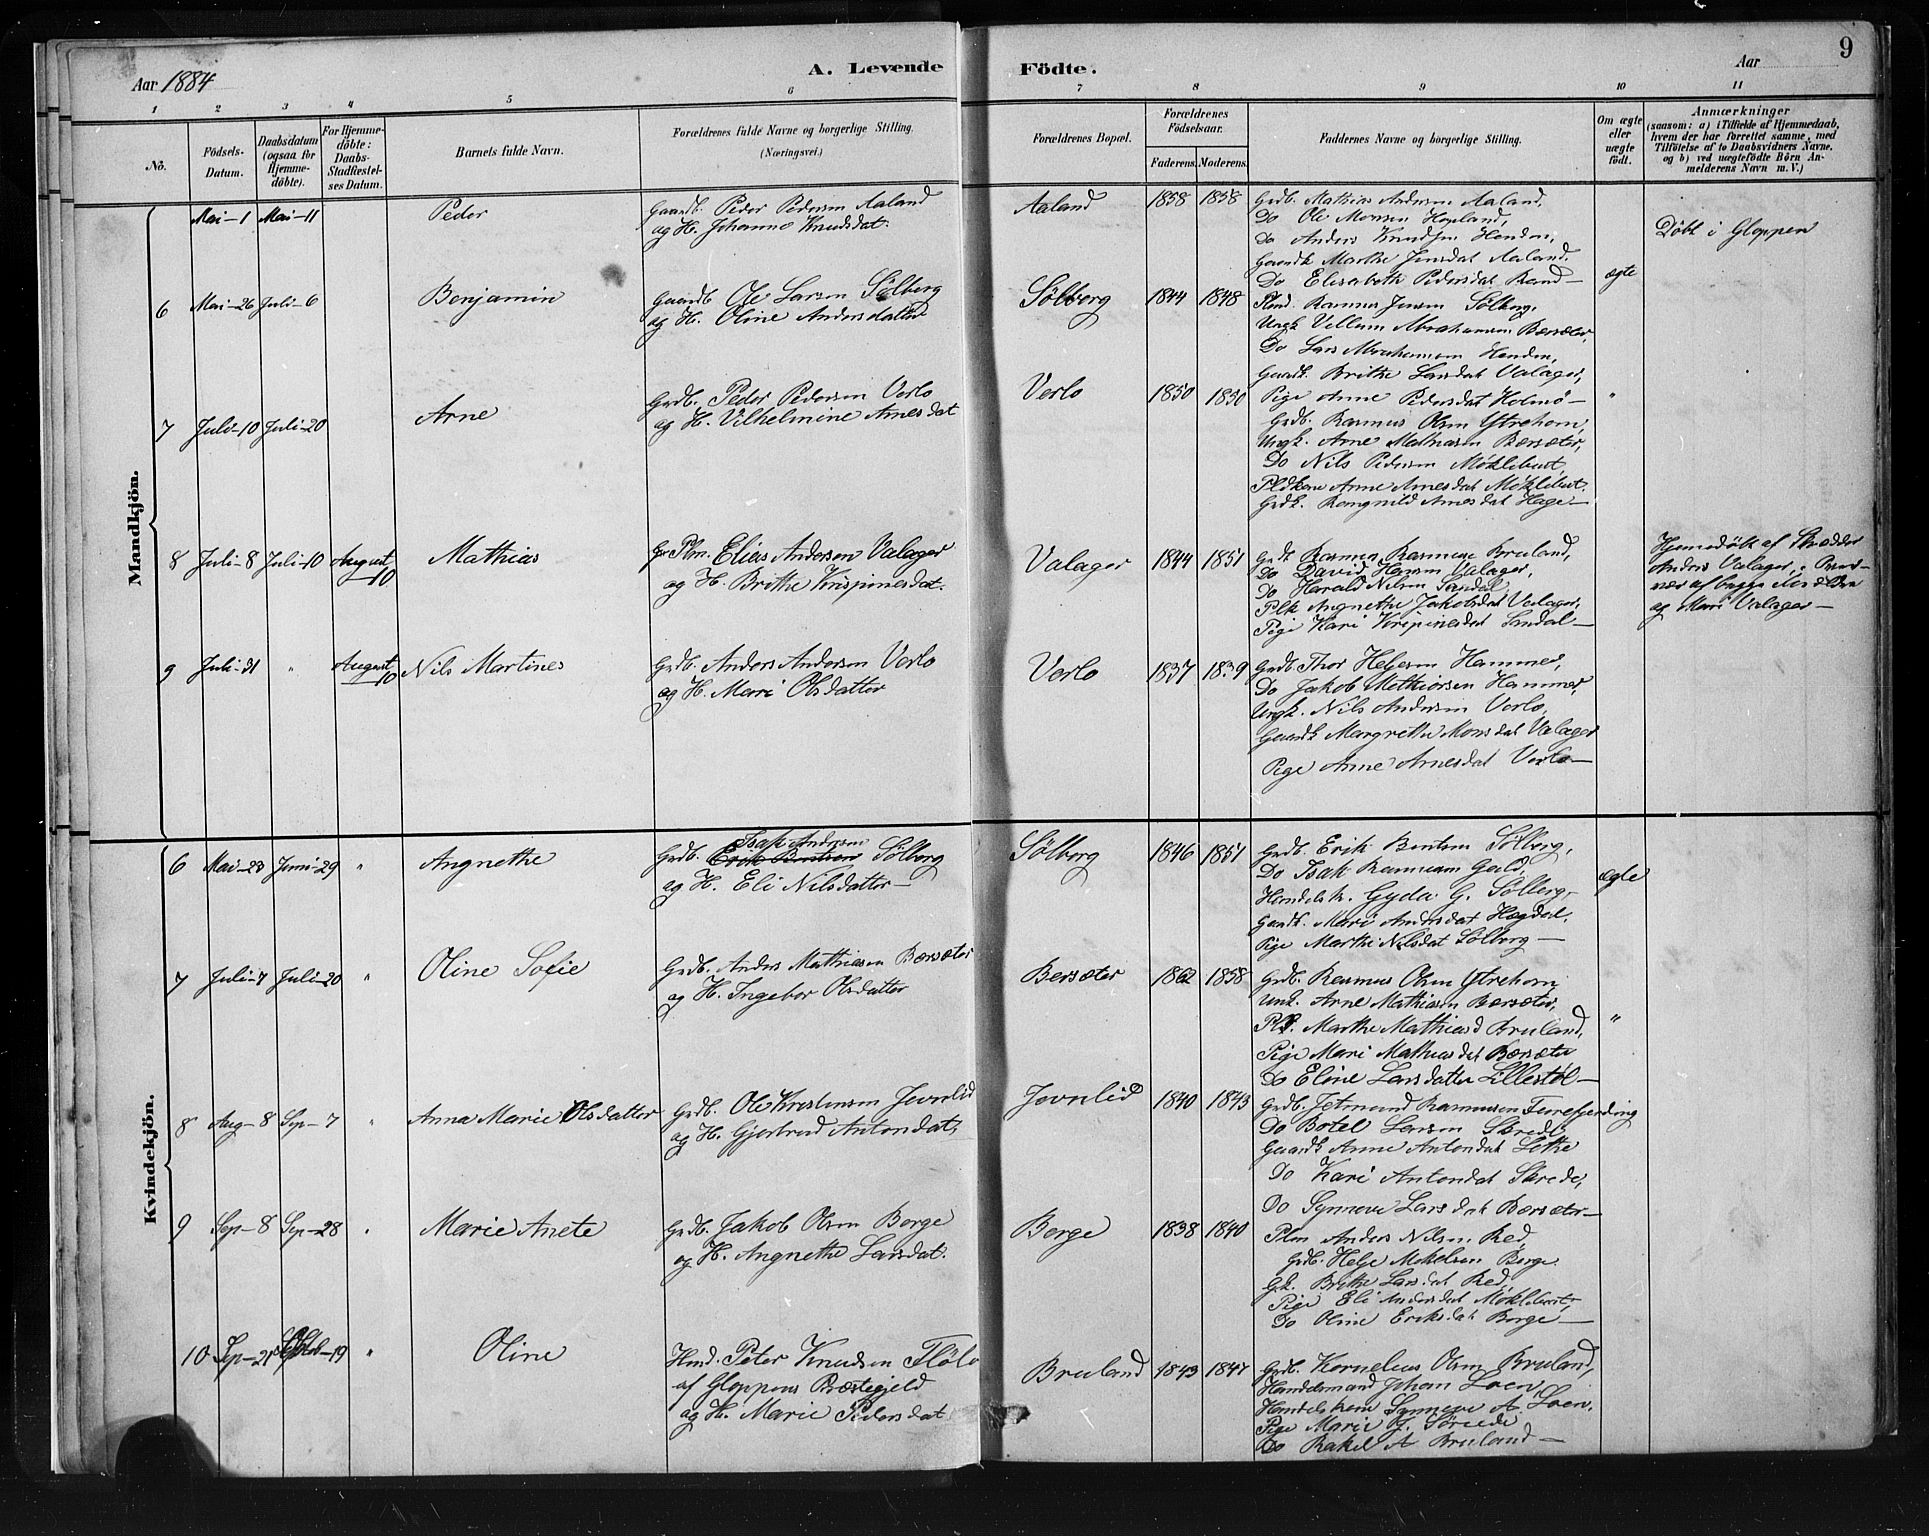 9
Aar 1884
A. Levende Födte.
Aar
1 2 3 4 5 6 7 8 9 10 11
No.
Födsels-Datum.
Daabsdatum (ogsaa for Hjemme-döbte).
For Hjemme-döbte: Daabs-Stadfæstel-ses Datum.
Barnets fulde Navn.
Forældrenes fulde Navne og borgerlige Stilling. (Næringsvei.)
Forældrenes Bopæl.
Forældrenes Födselsaar.
Faderens. Moderens.
Faddernes Navne og borgerlige Stilling.
Om ægte eller uægte født.
Anmærkninger
(saasom: a) i Tilfælde af Hjemmedaab,
hvem der har forrettet samme, med
Tilföielse af to Daabsvidners Navne.
og b) ved uægtefödte Börn An-
melderens Navn m.V.)
Mandkjön.
Mai-1 Mai-11 Peder
Gaardb. Peder Pedersen Aaland
og H. Johanne Knudsdat.
Aaland 1858 1858
Grdb. Mathias Andersen Aaland,
Do Ole Monsen Hopland,
Do Anders Knudsen Henden,
Gaardk Marthe Jensdat Aaland,
Do Elisabeth Pedersdat Rand-
Döbt i Gloppen
6 Mai-26 Juli-6 Benjamin
Gaardb Ole Larsen Sølberg
og H. Oline Andersdatter
Sølberg 1844 1848 ægte
Plmd. Rasmus Jensen Sølberg,
Ungk Vellum Abrahamsen Bersæter,
Do Lars Abrahamsen Henden,
Gaardk. Brithe Larsdat Valager,
Pige Anne Pedersdat Holmø-
7 Juli-10 Juli-20 Arne
Grdb. Peder Pedersen Verlo
og H. Vilhelmine Arnesdat
Verlo 1850 1850 "
Grdb. Rasmus Olsen Ytrehorn,
Ungk. Arne Mathiasen Bersæter,
Do Nils Pedersen Møklebust,
Pldkone Anne Arnesdat Møklebust.
Grdk. Ragnhild Arnesdat Hage-
8 Juli-8 Juli-10 August 10 Mathias
Plm. Elias Andersen Valager
og H. Brithe Krispinesdat.
Valager 1844 1851
Grdb Rasmus Rasmusen Bruland,
Do David Hansen Valager,
Do Harald Nilsen Sandal,
Plk Angnethe Jakobsdat Valager,
Pige Kari Krispinesdat Sandal-
Hjemedøbt af Skrædder
Anders Valager, i Nær-
vær af begge Forældre
og Mari Valager-
9 Juli-31 " August 10 Nils Martines
Grdb. Anders Andersen Verlo
og H. Mari Olsdatter
Verlo 1837 1839
Grdb. Thor Helgesen Hammer,
Do Jakob Melkiorsen Hammer,
Ungk. Nils Andersen Verlo,
Gaardk Margrethe Monsdat Valager
Pige Anne Arnesdat Verlo-
Kvindekjön.
6 Mai-23 Juni-29 " Angnethe
Isak Andersen
Grdb. Erik Bentsen Sølberg
og H. Eli Nilsdatter-
Sølberg 1846 1851 ægte
Grdb. Erik Bentsen Sølberg,
Do Isak Rasmusen Gald,
Handelsk. Gyda G. Sølberg,
Gaardk. Mari Andersdat Hegdal,
Pige Marthe Nilsdat Sølberg-
7 Juli-7 Juli-20 " Oline Sofie
Grdb. Anders Mathiasen Bersæter
og H. Ingebor Olsdatter
Bersæter 1862 1858 "
Grdb. Rasmus Olsen Ytrehorn,
Unk. Arne Mathiasen Bersæter,
Plk. Marthe Mathiasd Bruland,
Pige Mari Mathiasdat Bersæter
Do Eline Larsdatter Lillestøl-
8 Aug-8 Sep-7 " Anna Marie Olsdatter
Grdb. Ole Kristensen Jevnlid
og H. Gjertrud Antondat,
Jevnlid 1840 1843
Grdb. Jetmund Rasmusen Furefjerding
Do Botel Larsen Skrede,
Gaardk Anne Antondat Lothe
Do Kari Antondat Skrede,
Do Synneve Larsdat Bersæter-
9 Sep-8 Sep-28 " Marie Anete
Grdb. Jakob Olsen Borge
og H. Angnethe Larsdat.
Borge 1838 1840
Plm Anders Nilsen Red,
Grdb. Helge Mikelsen Borge
Gk. Brithe Larsdat Red,
Pige Eli Andersdat Møklebust,
Do Oline Eriksdat Borge-
10 Sep-21 Oktob-19 " Oline
Hmd. Peter Knudsen Fløtø
af Gloppens Præstegjeld
og H. Marie Pedersdat
Bruland 1843 1847
Grdb. Kornelius Olsen Bruland,
Handelsmand Johan Loen,
Handelskone Synneve A. Loen,
Pige Marie J. Sørede
Do Rakel A Bruland-